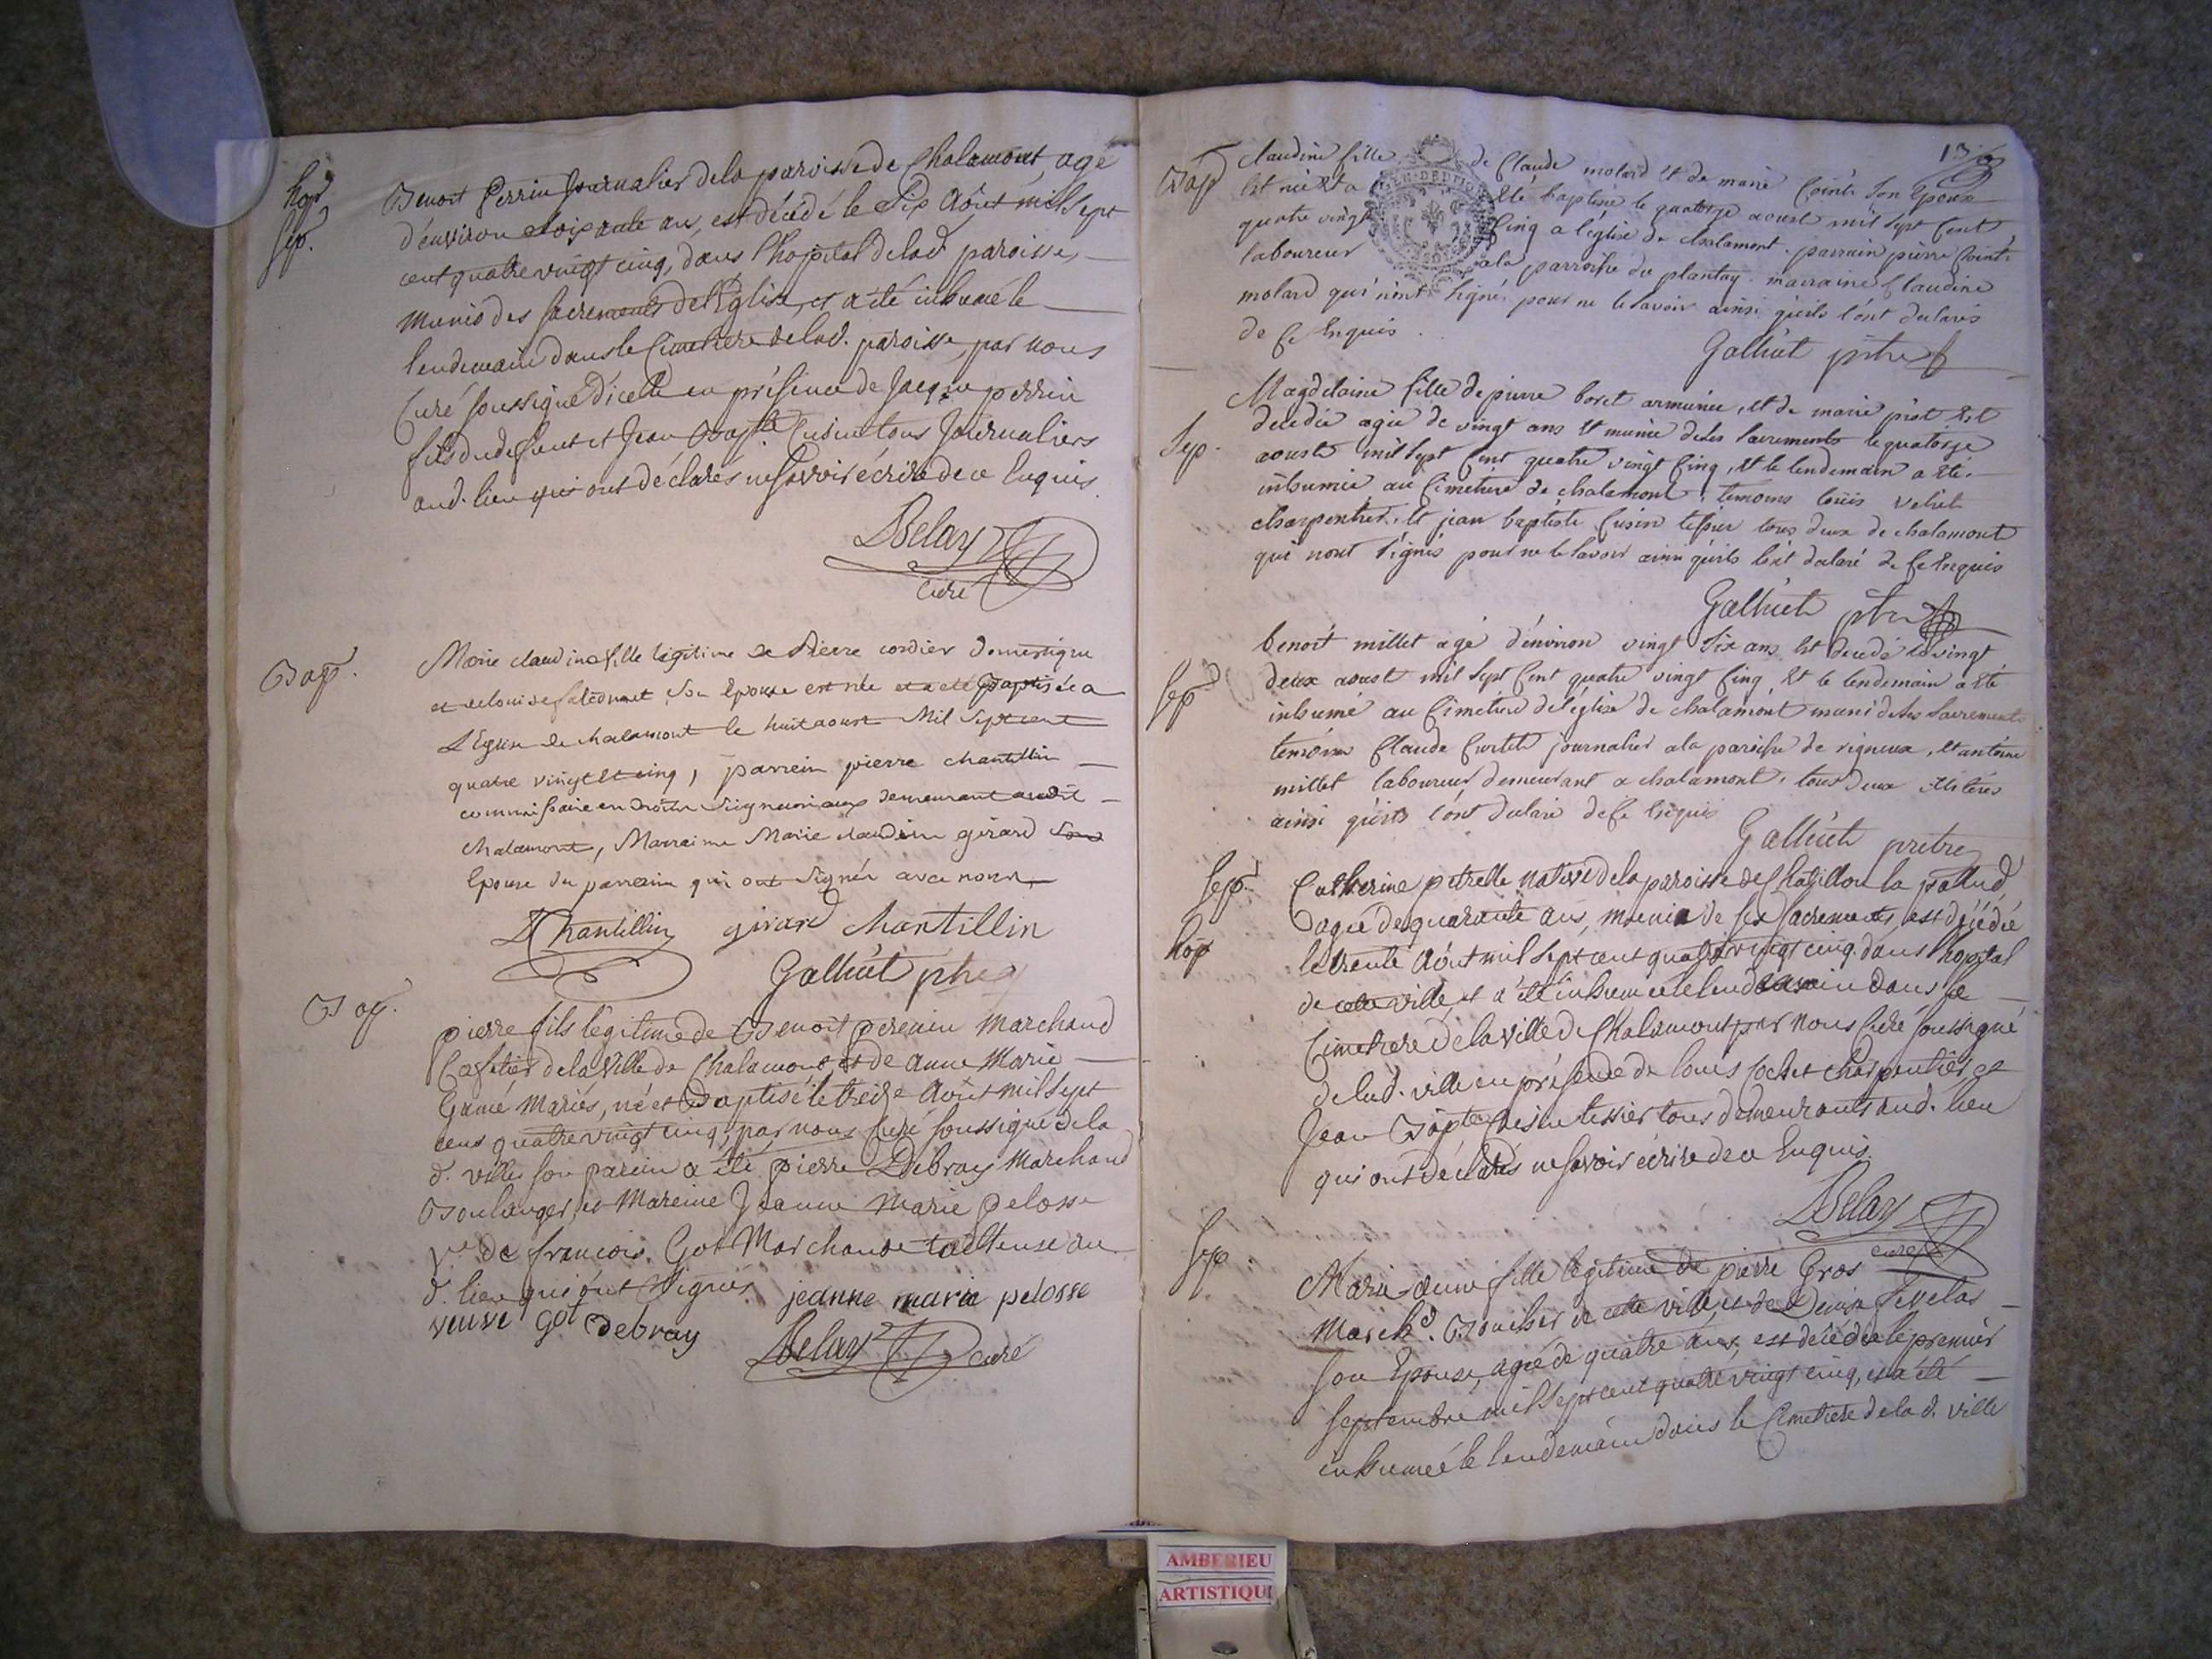 hop.
Sep.
Benoit Perrin Journalier de la paroisse de Chalamont, agé
d'environ soixante ans, est décédé le Six Août mil Sept
cent quatre vingt cinq, dans l'hopital de lad. paroisse,
munis des sacrements de l'Eglise, et a été inhumé le
lendemain dans le Cimetiere de lad. paroisse, par nous
Curé soussigné d'icelle en présence de Jacque perrin
fils dudefunt et Jean Bapt.te Cusin tous Journaliers
aud. lieu qui ont déclarés ne savoir écrire de ce Enquis.
Belay
Curé
Bap.
Marie claudine fille legitime de Pierre cordier Domestique
et de louise son Epouse est née et a eté Baptisée a
L'Eglise de chalamont le huit aoust Mil Sept cent
quatre vingt et cinq, parrein pierre chantillin
commissaire en droits Seigneuriaux demeurant audit
chalamont, Marraine Marie claudine girard son
Epouse du parrein qui ont signés avec nous
Chantillin girard chantillin
Galliet ptre
Bap.
pierre fils légitime de Benoit perenin Marchand
Cafetier de la Ville de Chalamont, et de anne Marie
Gamé Mariés, né et Baptisé le treize Août mil Sept
cent quatre vingt cinq, par nous Curé soussigné de la
d. ville son parein a été pierre Debray Marchand
Boulanger, et Mareine Jeanne Marie pelosse
v.e de francois Got Marchande au
d. lieu qui ont Signés jeanne marie pelosse
veuve got debray
Belay curé
13
Bap
claudine fille de Claude molard et de marie Cointe son Epouse
est née et a Eté baptisée le quatorze aoust mil sept Cent
quatre vingt Cinq a l'église de chalamont. parrain pierre Cointe
laboureur a la parroisse du plantay. marraine Claudine
molard qui n'ont signé pour ne le savoir ainsi qu'ils l'ont declarés
de ce Enquis.
Galliet ptre
Sep.
Magdelaine fille de pierre boret armurier, et de marie piot est
decedée agée de vingt ans et munie de ses sacrements le quatorze
aoust mil sept Cent quatre vingt Cinq, et le lendemain a été
inhumée au Cimetiere de chalamont, temoins loüis
charpentier, et jean baptiste Cusin tessier tous deux de chalamont
qui n'ont signés pour ne le savoir ainsi qu'ils l'ont declaré de ce Enquis
Galliet ptre
Sep
benoit millet agé d'environ vingt six ans est decedé le vingt
deux aoust mil sept Cent quatre vingt Cinq, et le lendemain a été
inhumé au Cimetiere de l'église de chalamont muni de ses sacrements
temoins Claude Curtet journalier a la paroisse de rigneux, et antoine
millet laboureur demeurant a chalamont, tous deux illiterés
ainsi qu'ils l'ont declaré de ce Enquis
Galliet pretre
Sep.
hop
Catherine petrelle native de la paroisse de Chatillon la pallud,
agée de quarante ans, munie de ses sacrements, est décédée
le trente Août mil sept cent quatre vingt cinq dans l'hopital
de cette ville, et a été inhumée le lendemain dans le
Cimetiere de la ville de Chalamont par nous Curé soussigné
de lad. ville en présence de louis Cochet charpentier et
Jean Bapt.te Cusin tessier tous demeurants aud. lieu
qui ont déclarés ne savoir écrire de ce Enquis.
Belay
curé
Sep.
Marie anne fille légitime de pierre Gros
March.d Boucher de cette ville, et de Denise fevelas
son Epouse, agée de quatre ans, est décédée le premier
septembre mil sept cent quatre vingt cinq, et a été
inhumée le lendemain dans le Cimetiere de la d. ville
AMBERIEU
ARTISTIQUE